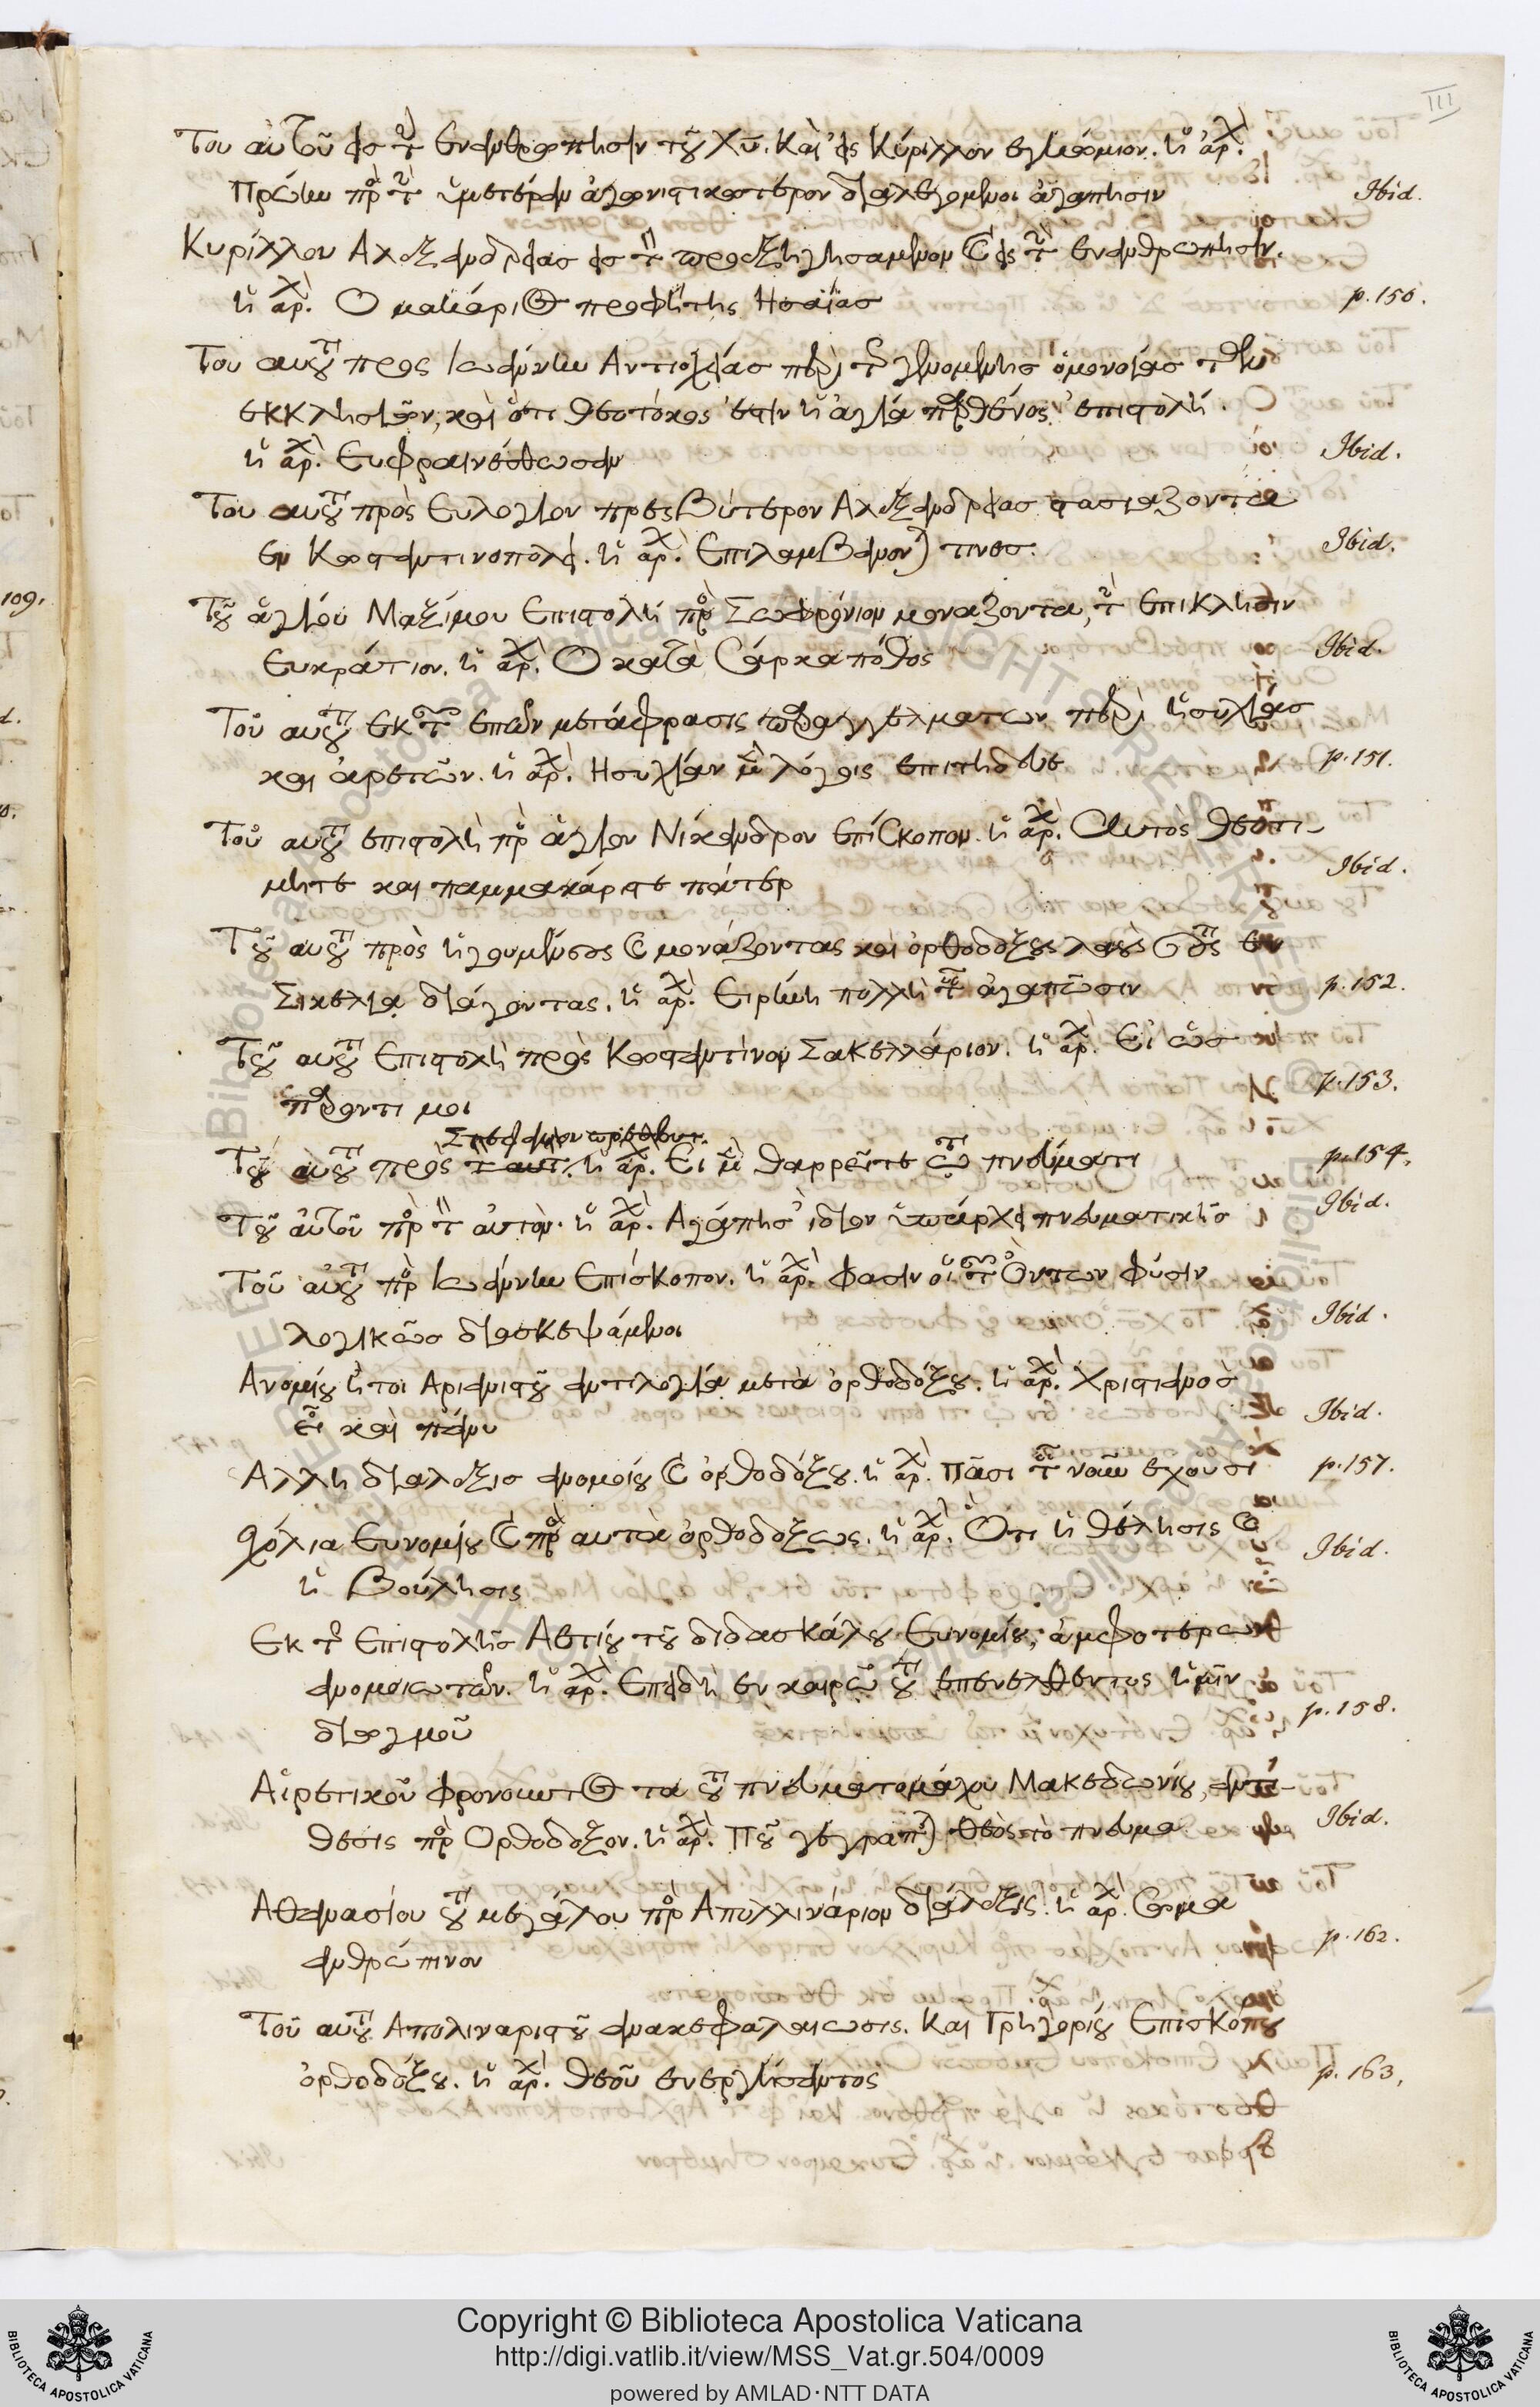 III
Του αὐτοῦ εἰς τὴν ἐνανθρώπησιν τοῦ Χυ. Καὶ εἰς Κύριλλον ἐγκώμιον. ἡ ἀρχ.
Πρώην πρὸς τὴν ὑμετέραν ἀγωνιστικώτερον διαλεγόμενοι ἀγάπησιν Ibid.
Κυρίλλου Αλεξανδρείας εἰς τὸν καὶ εἰς τὴν ἐνανθρώπησιν.
ἡ ἀρχ. Ο μακάριος προφήτης Ησαΐας p. 150.
Του αυτοῦ προς Ιωάννην Αντιοχείας περὶ τῆς γενομένης ὁμονοίας τῶν
εκκλησιῶν, καὶ ὅτι θεοτόκος ἐστὶν ἡ ἁγία παρθένος ἐπιστολή.
ἡ ἀρχ. Ευφραινέσθωσαν Ibid.
Του αυτοῦ πρὸς Ευλόγιον πρεσβύτερον Αλεξανδρείας στασιάζοντα
εν Κωσταντινοπόλει. ἡ ἀρχ. Επιλαμβάνονται τινες. Ibid.
Τοῦ ἁγίου Μαξίμου Επιστολὴ πρὸς Σωφρόνιον μονάζοντα, τὴν επίκλησιν
Ευκράτιον. ἡ ἀρχ. Ο κατὰ Σάρκα πόθος Ibid.
Τοῦ αυτοῦ εκ τῶν μετάφρασις παραγγελμάτων περὶ ἡσυχίας
και ἀρετῶν. ἡ ἀρχ. Ησυχίαν μὲν λόγοις επιτήδευε p. 151.
Τοῦ αυτοῦ επιστολὴ πρὸς ἅγιον Νίκανδρον επίσκοπον. ἡ ἀρχ. Αυτὸς θεοτι-
μητε και παμμακάριστε πάτερ Ibid.
Τοῦ αυτοῦ πρὸς ἡγουμένους καὶ μονάζοντας και ὀρθοδόξους λαοὺς τοὺς εν
Σικελία διάγοντας. ἡ ἀρχ. Ειρήνη πολλὴ τοῖς ἀγαπῶσιν p. 152.
Τοῦ αυτοῦ Επιστολὴ πρὸς Κωσταντίνον Σακελλάριον. ἡ ἀρχ. Εἰ ὡς
παρόντι μοι p. 153.
Στέφανον πρεσβυτ.
Τοῦ αὐτοῦ πρὸς τ αυτ. ἡ ἀρχ. Ει μὲν θαρρεῖτε τῷ πνεύματι p. 154.
Τοῦ αὐτοῦ πρὸς τὸν αὐτὸν. ἡ ἀρχ. Αγάπης ἴδιον ὑπάρχει πνευματικῆς Ibid.
Τοῦ αὐτοῦ πρὸς Ιωάννην Επίσκοπον. ἡ ἀρχ. Φασὶν οἱ τῶν ὄντων φύσιν
λογικῶς διασκεψάμενοι Ibid.
Ανομίου ἤτοι Αριανιστοῦ ἀντιλογία μετὰ ὀρθοδόξου. ἡ ἀρχ. Χριστιανὸς
εἶ καὶ πάνυ Ibid.
Αλλη διάλεξις ἀνομοίου καὶ ὀρθοδόξου. ἡ ἀρχ. Πᾶσι τοῖς νοῦν ἔχουσι p. 157.
Σχόλια Ευνομίου καὶ πρὸς αυτὰ ὀρθοδόξως. ἡ ἀρχ. Ὅτι ἡ θέλησις καὶ
ἡ Βούλησις Ibid.
Εκ τῆς Επιστολῆς Αετίου τοῦ διδασκάλου Ευνομίου, ἀμφοτέρων
ἀνομοιωτῶν. ἡ ἀρχ. Επειδὴ εν καιρῷ τοῦ επενεχθέντος ἡμῖν
διωγμοῦ p. 158.
Αἱρετικοῦ φρονοῦντος τα τοῦ πνευματομάχου Μακεδονίου, ἀντί-
θεσις πρὸς Ορθόδοξον. ἡ ἀρχ. Ποῦ γέγραπται Θεὸς τὸ πνεῦμα Ibid.
Αθανασίου τοῦ μεγάλου πρὸς Απολλινάριον διάλεξις. ἡ ἀρχ. Σῶμα
ἀνθρώπινον p. 162.
Τοῦ αυτοῦ Απολιναριστοῦ ἀνακεφαλαίωσις. Και Γρηγορίου Επισκόπου
ὀρθοδόξου. ἡ ἀρχ. Θεοῦ ενεργήσαντος p. 163.
109.
Copyright © Biblioteca Apostolica Vaticana
http://digi.vatlib.it/view/MSS_Vat.gr.504/0009
powered by AMLAD·NTT DATA
BIBLIOTECA APOSTOLICA VATICANA
BIBLIOTECA APOSTOLICA VATICANA